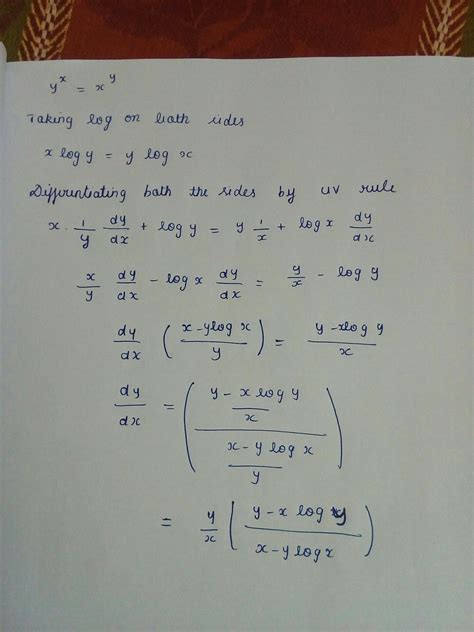 y^x = x^y
Taking log on both sides
x log y = y log x
Differentiating both the sides by uv rule
x · 1/y dy/dx + log y = y 1/x + log x dy/dx
x/y dy/dx - log x dy/dx = y/x - log y
dy/dx ((x - y log x)/y) = (y - x log y)/x
dy/dx = (((y - x log y)/x)/((x - y log x)/y))
= y/x ((y - x log y)/(x - y log x))